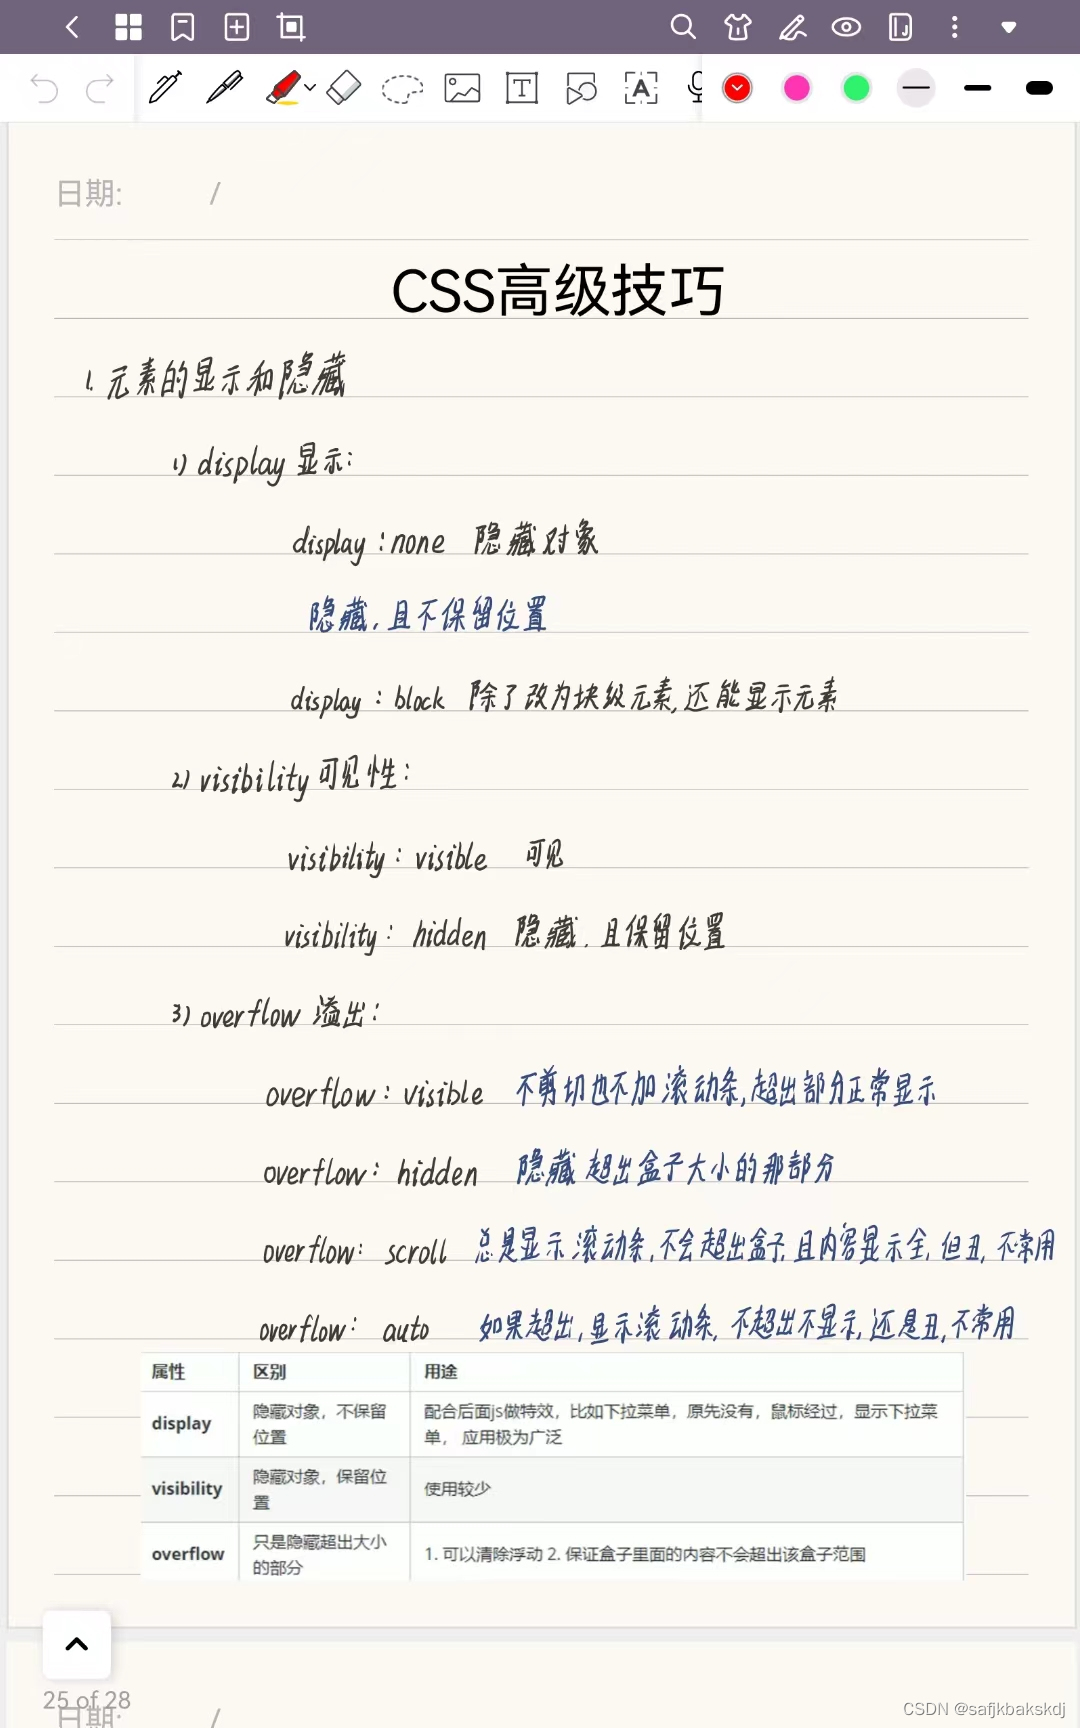 日期: /
CSS高级技巧
1. 元素的显示和隐藏
1) display 显示:
display : none 隐藏对象
隐藏, 且不保留位置
display : block 除了改为块级元素, 还能显示元素
2) visibility 可见性:
visibility : visible 可见
visibility : hidden 隐藏, 且保留位置
3) overflow 溢出:
overflow : visible 不剪切也不加滚动条, 超出部分正常显示
overflow : hidden 隐藏超出盒子大小的那部分
overflow : scroll 总是显示滚动条, 不会超出盒子, 且内容显示全, 但丑, 不常用
overflow : auto 如果超出, 显示滚动条, 不超出不显示, 还是丑, 不常用
属性 区别 用途
display 隐藏对象，不保留位置 配合后面js做特效，比如下拉菜单，原先没有，鼠标经过，显示下拉菜单， 应用极为广泛
visibility 隐藏对象，保留位置 使用较少
overflow 只是隐藏超出大小的部分 1. 可以清除浮动 2. 保证盒子里面的内容不会超出该盒子范围
25 of 28
日期: /
CSDN @safjkbakskdj